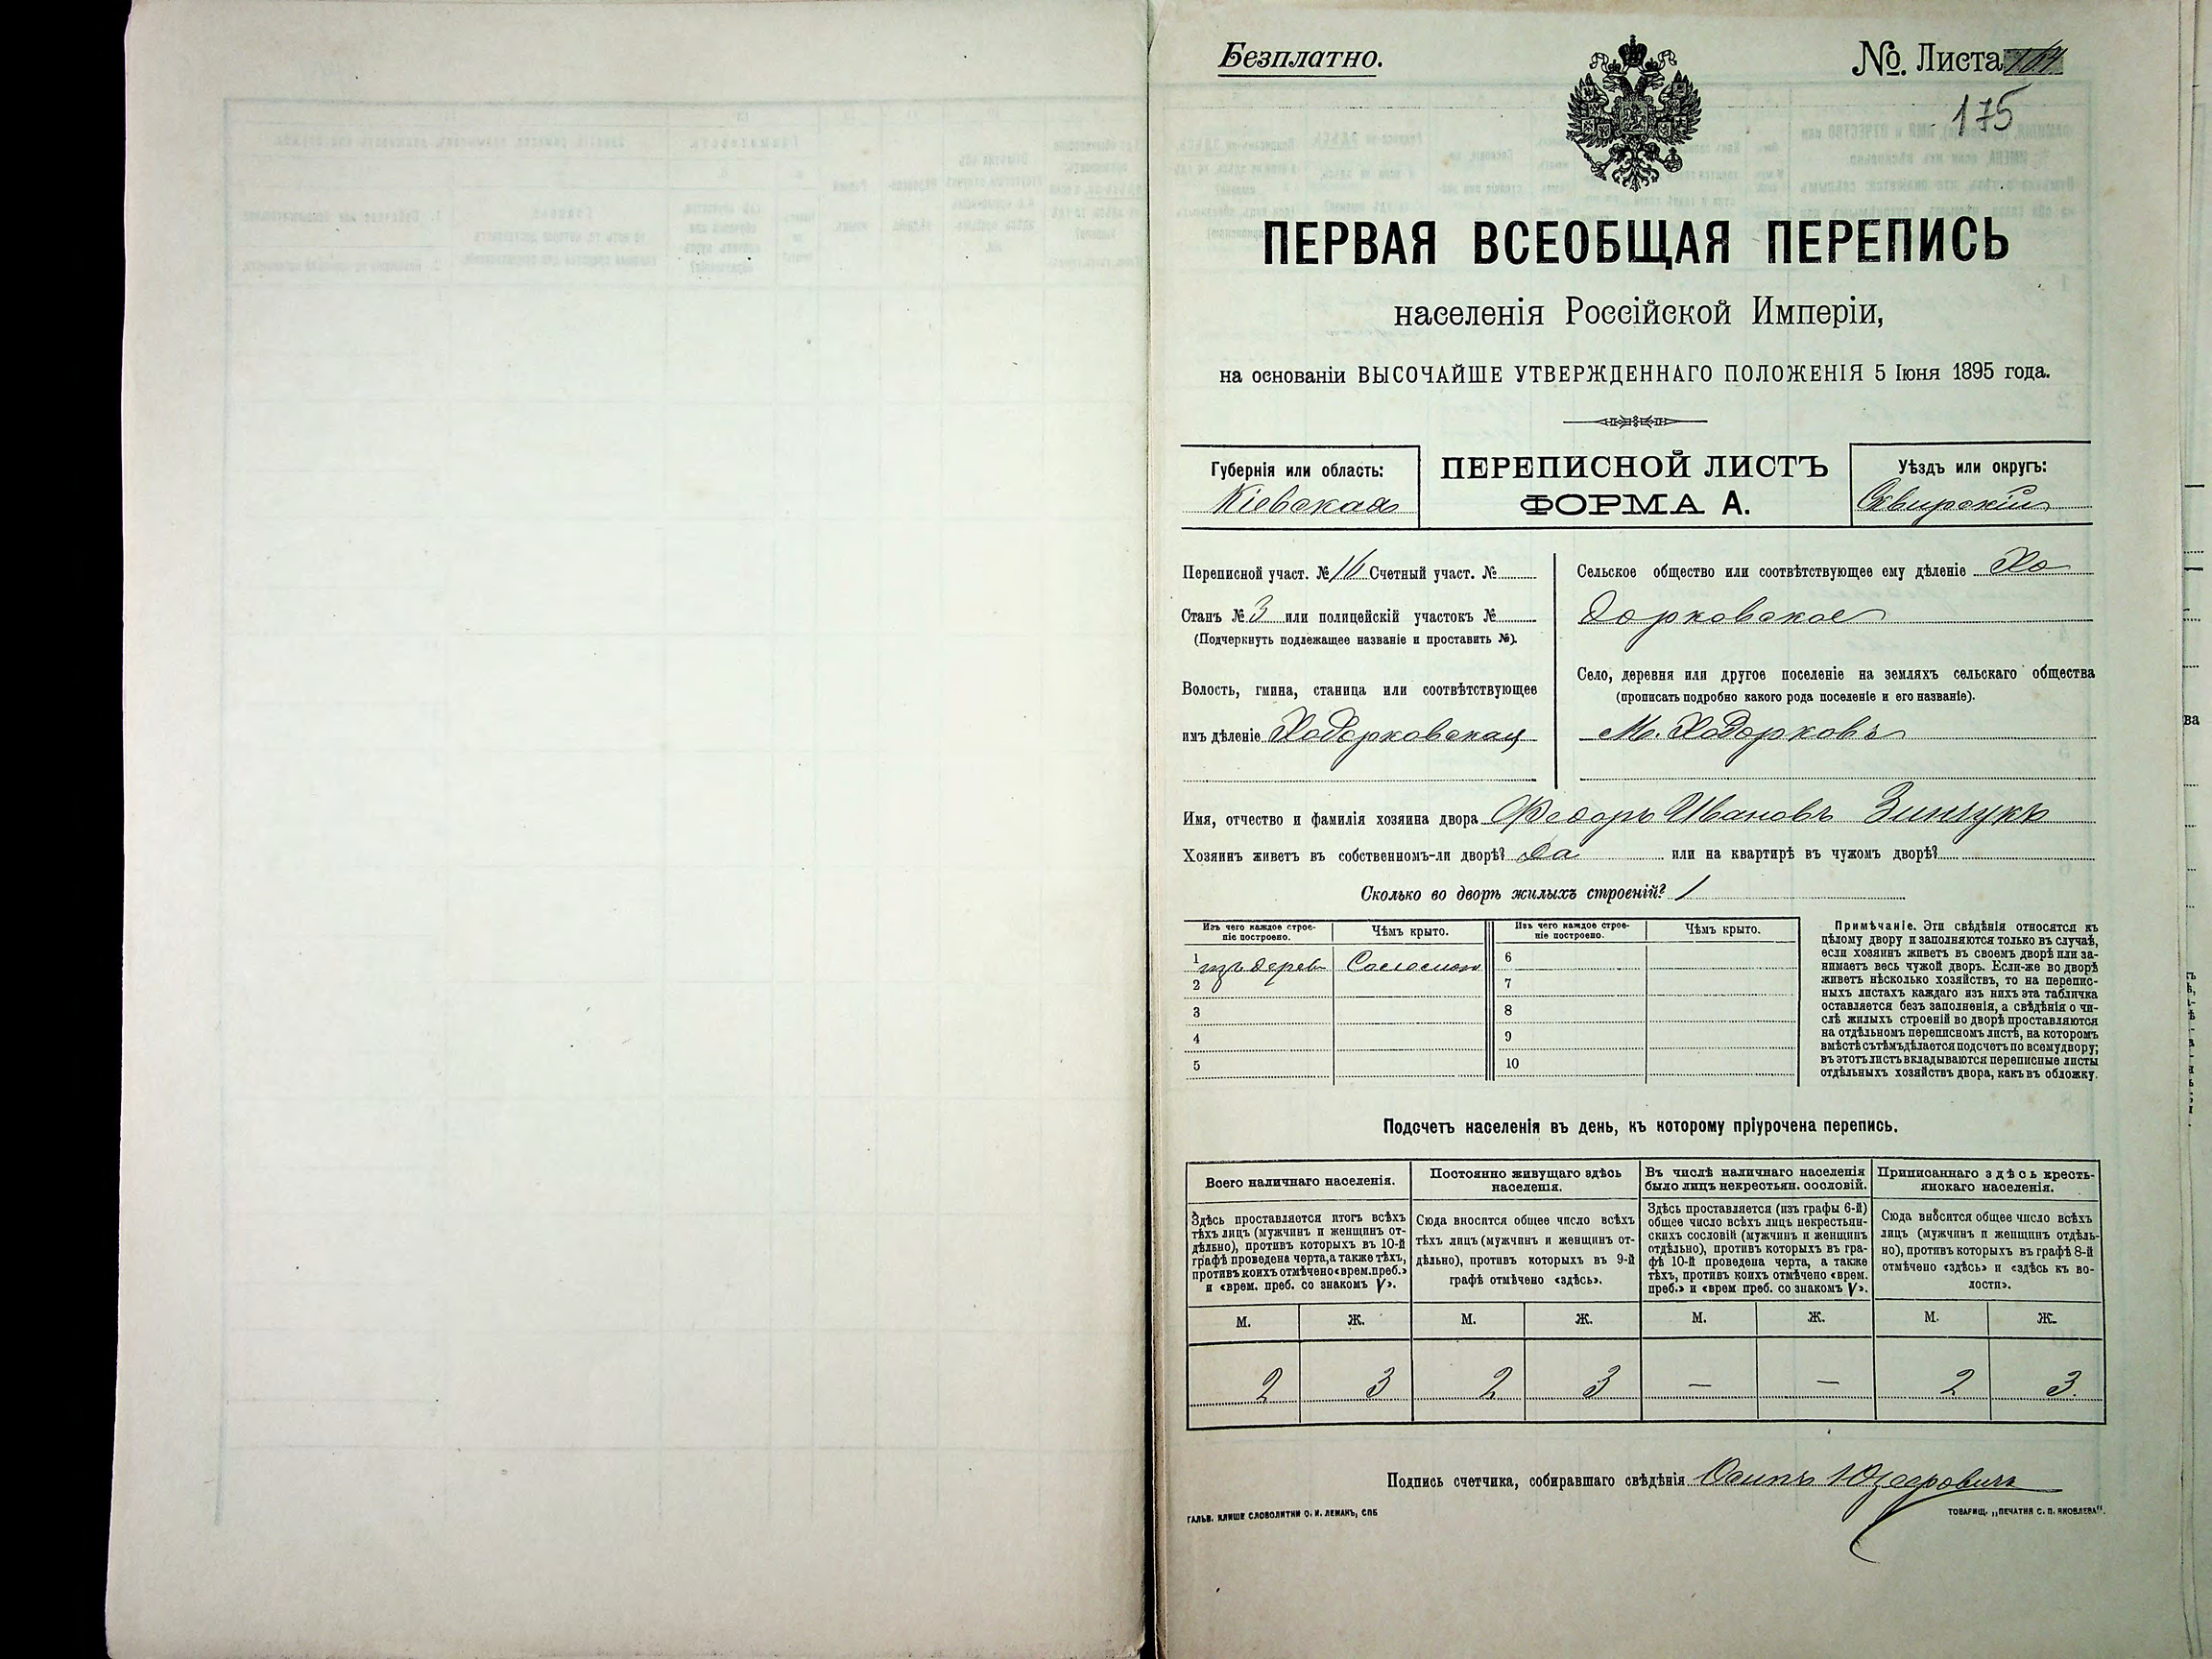 Безплатно.
№. Листа
175
ПЕРВАЯ ВСЕОБЩАЯ ПЕРЕПИСЬ
населенія Россійской Имперіи,
на основаніи ВЫСОЧАЙШЕ УТВЕРЖДЕННАГО ПОЛОЖЕНІЯ 5 Іюня 1895 года.
Губернія или область:
Кіевская
ПЕРЕПИСНОЙ ЛИСТЪ
ФОРМА А.
Уѣздъ или округъ:
Сквирскій
Переписной участ. № 16 Счетный участ. №
Станъ № 3 или полицейскій участокъ №
(Подчеркнуть подлежащее названіе и проставить №).
Волость, гмина, станица или соотвѣтствующее
имъ дѣленіе Ходорковская
Сельское общество или соотвѣтствующее ему дѣленіе Хо
дорковское
Село, деревня или другое поселеніе на земляхъ сельскаго общества
(прописать подробно какого рода поселеніе и его названіе).
М. Ходорковъ
Имя, отчество и фамилія хозяина двора Федоръ Ивановъ Зинчукъ
Хозяинъ живетъ въ собственномъ-ли дворѣ? Да или на квартирѣ въ чужомъ дворѣ?
Сколько во дворѣ жилыхъ строеній? 1
Изъ чего каждое строе-
ніе построено.
Чѣмъ крыто.
Изъ чего каждое строе-
ніе построено.
Чѣмъ крыто.
1 изъ дерев Соломою 6
2 7
3 8
4 9
5 10
Примѣчаніе. Эти свѣдѣнія относятся къ
цѣлому двору и заполняются только въ случаѣ,
если хозяинъ живетъ въ своемъ дворѣ или за-
нимаетъ весь чужой дворъ. Если-же во дворѣ
живетъ нѣсколько хозяйствъ, то на перепис-
ныхъ листахъ каждаго изъ нихъ эта табличка
оставляется безъ заполненія, а свѣдѣнія о чи-
слѣ жилыхъ строеній во дворѣ проставляются
на отдѣльномъ переписномъ листѣ, на которомъ
вмѣстѣ съ тѣмъ дѣлается подсчетъ по всему двору;
въ этотъ листъ вкладываются переписные листы
отдѣльныхъ хозяйствъ двора, какъ въ обложку.
Подсчетъ населенія въ день, къ которому пріурочена перепись.
Всего наличнаго населенія.
Здѣсь проставляется итогъ всѣхъ
тѣхъ лицъ (мужчинъ и женщинъ от-
дѣльно), противъ которыхъ въ 10-й
графѣ проведена черта, а также тѣхъ,
противъ коихъ отмѣчено «врем. преб.»
и «врем. преб. со знакомъ V».
Постоянно живущаго здѣсь
населенія.
Сюда вносится общее число всѣхъ
тѣхъ лицъ (мужчинъ и женщинъ от-
дѣльно), противъ которыхъ въ 9-й
графѣ отмѣчено «здѣсь».
Въ числѣ наличнаго населенія
было лицъ некрестьян. сословій.
Здѣсь проставляется (изъ графы 6-й)
общее число всѣхъ лицъ некрестьян-
скихъ сословій (мужчинъ и женщинъ
отдѣльно), противъ которыхъ въ гра-
фѣ 10-й проведена черта, а также
тѣхъ, противъ коихъ отмѣчено «врем.
преб.» и «врем преб. со знакомъ V».
Приписаннаго здѣсь кресть-
янскаго населенія.
Сюда вносится общее число всѣхъ
лицъ (мужчинъ и женщинъ отдѣль-
но), противъ которыхъ въ графѣ 8-й
отмѣчено «здѣсь» и «здѣсь къ во-
лости».
М. Ж. М. Ж. М. Ж. М. Ж.
2 3 2 3 — — 2 3.
Подпись счетчика, собиравшаго свѣдѣнія Осипъ
ГАЛЬВ. КЛИШЕ СЛОВОЛИТНИ О. И. ЛЕМАНЪ, СПБ
ТОВАРИЩ. „ПЕЧАТНЯ С. П. ЯКОВЛЕВА".